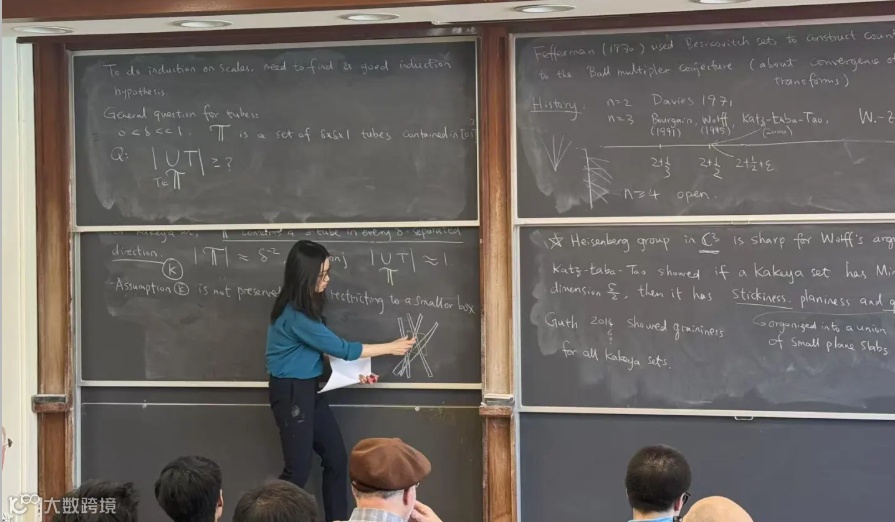 To do induction on scales, need to find a good induction
hypothesis.
General question for tubes:
0 < δ << 1. 𝕋 is a set of δxδx1 tubes contained in
Q: |∪T| ≥ ?
T∈𝕋
direction. |𝕋| ≈ δ⁻² |∪T| ≈ 1
Ⓚ 𝕋
- Assumption Ⓚ is not restricting to a smaller box
Fefferman (1970) used Besicovitch sets to construct
to the Ball multiplier conjecture (about convergence of
transforms)
History. n=2 Davies 1971
n=3 Bourgain, Wolff, Katz-Łaba-Tao, W.-Z
(1991) (1995) (2000)
2+1/3 2+1/2 2+1/2+ε
n≥4 open.
☆ Heisenberg group in ℂ³ is sharp for Wolff's
Katz-Łaba-Tao showed if a Kakeya set has
dimension 5/2, then it has stickiness, planiness and
Guth 2016 showed graininess organized into a union
of small plane slabs
for all Kakeya sets.
大数跨境